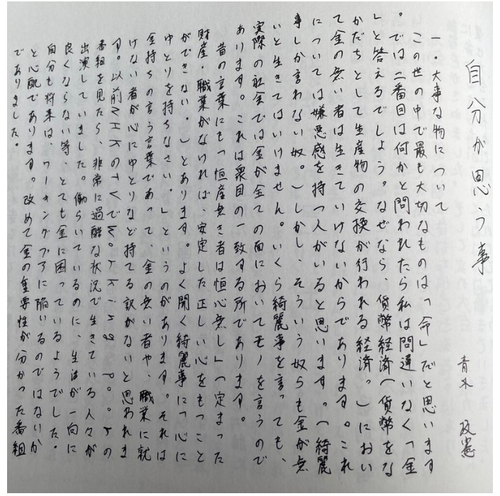 自分が思う事
青木 政憲
一．大事な物について
この世の中で最も大切なものは「命」だと思います
。では二番目は何かと問われたら私は間違いなく「金
」と答えるでしょう。なぜなら、貨幣経済（貨幣をな
かだちとして生産物の交換が行われる経済。）におい
て金の無い者は生きていけないからであります。これ
については嫌悪感を持つ人がいると思います。（綺麗
事しか言わない奴。）しかし、そういう奴らも金が無
いと生きてはいけません。いくら綺麗事を言っても、
実際の社会では金が全ての面においてモノを言うので
あります。これは衆目の一致する所であります。
昔の言葉にも「恒産無き者は恒心無し」（定まった
財産、職業がなければ、安定した正しい心をもつこと
ができない。）とあります。よく聞く綺麗事に「心に
ゆとりを持ちなさい。」というのがあります。それは
金持ちの言う言葉であって、金の無い者や、職業に就
けない者が心にゆとりなど持てる訳がないと思われま
す。以前NHKのTVで の
番組を見たら、非常に過酷な状況で生きている人々が
出演していました。働らいているのに、生活が一向に
良くならない等、とても金に困っているようでした。
自分も将来は、ワーキングプアに陥いるのではないか
と心配であります。改めて金の重要性が分かった番組
でありました。